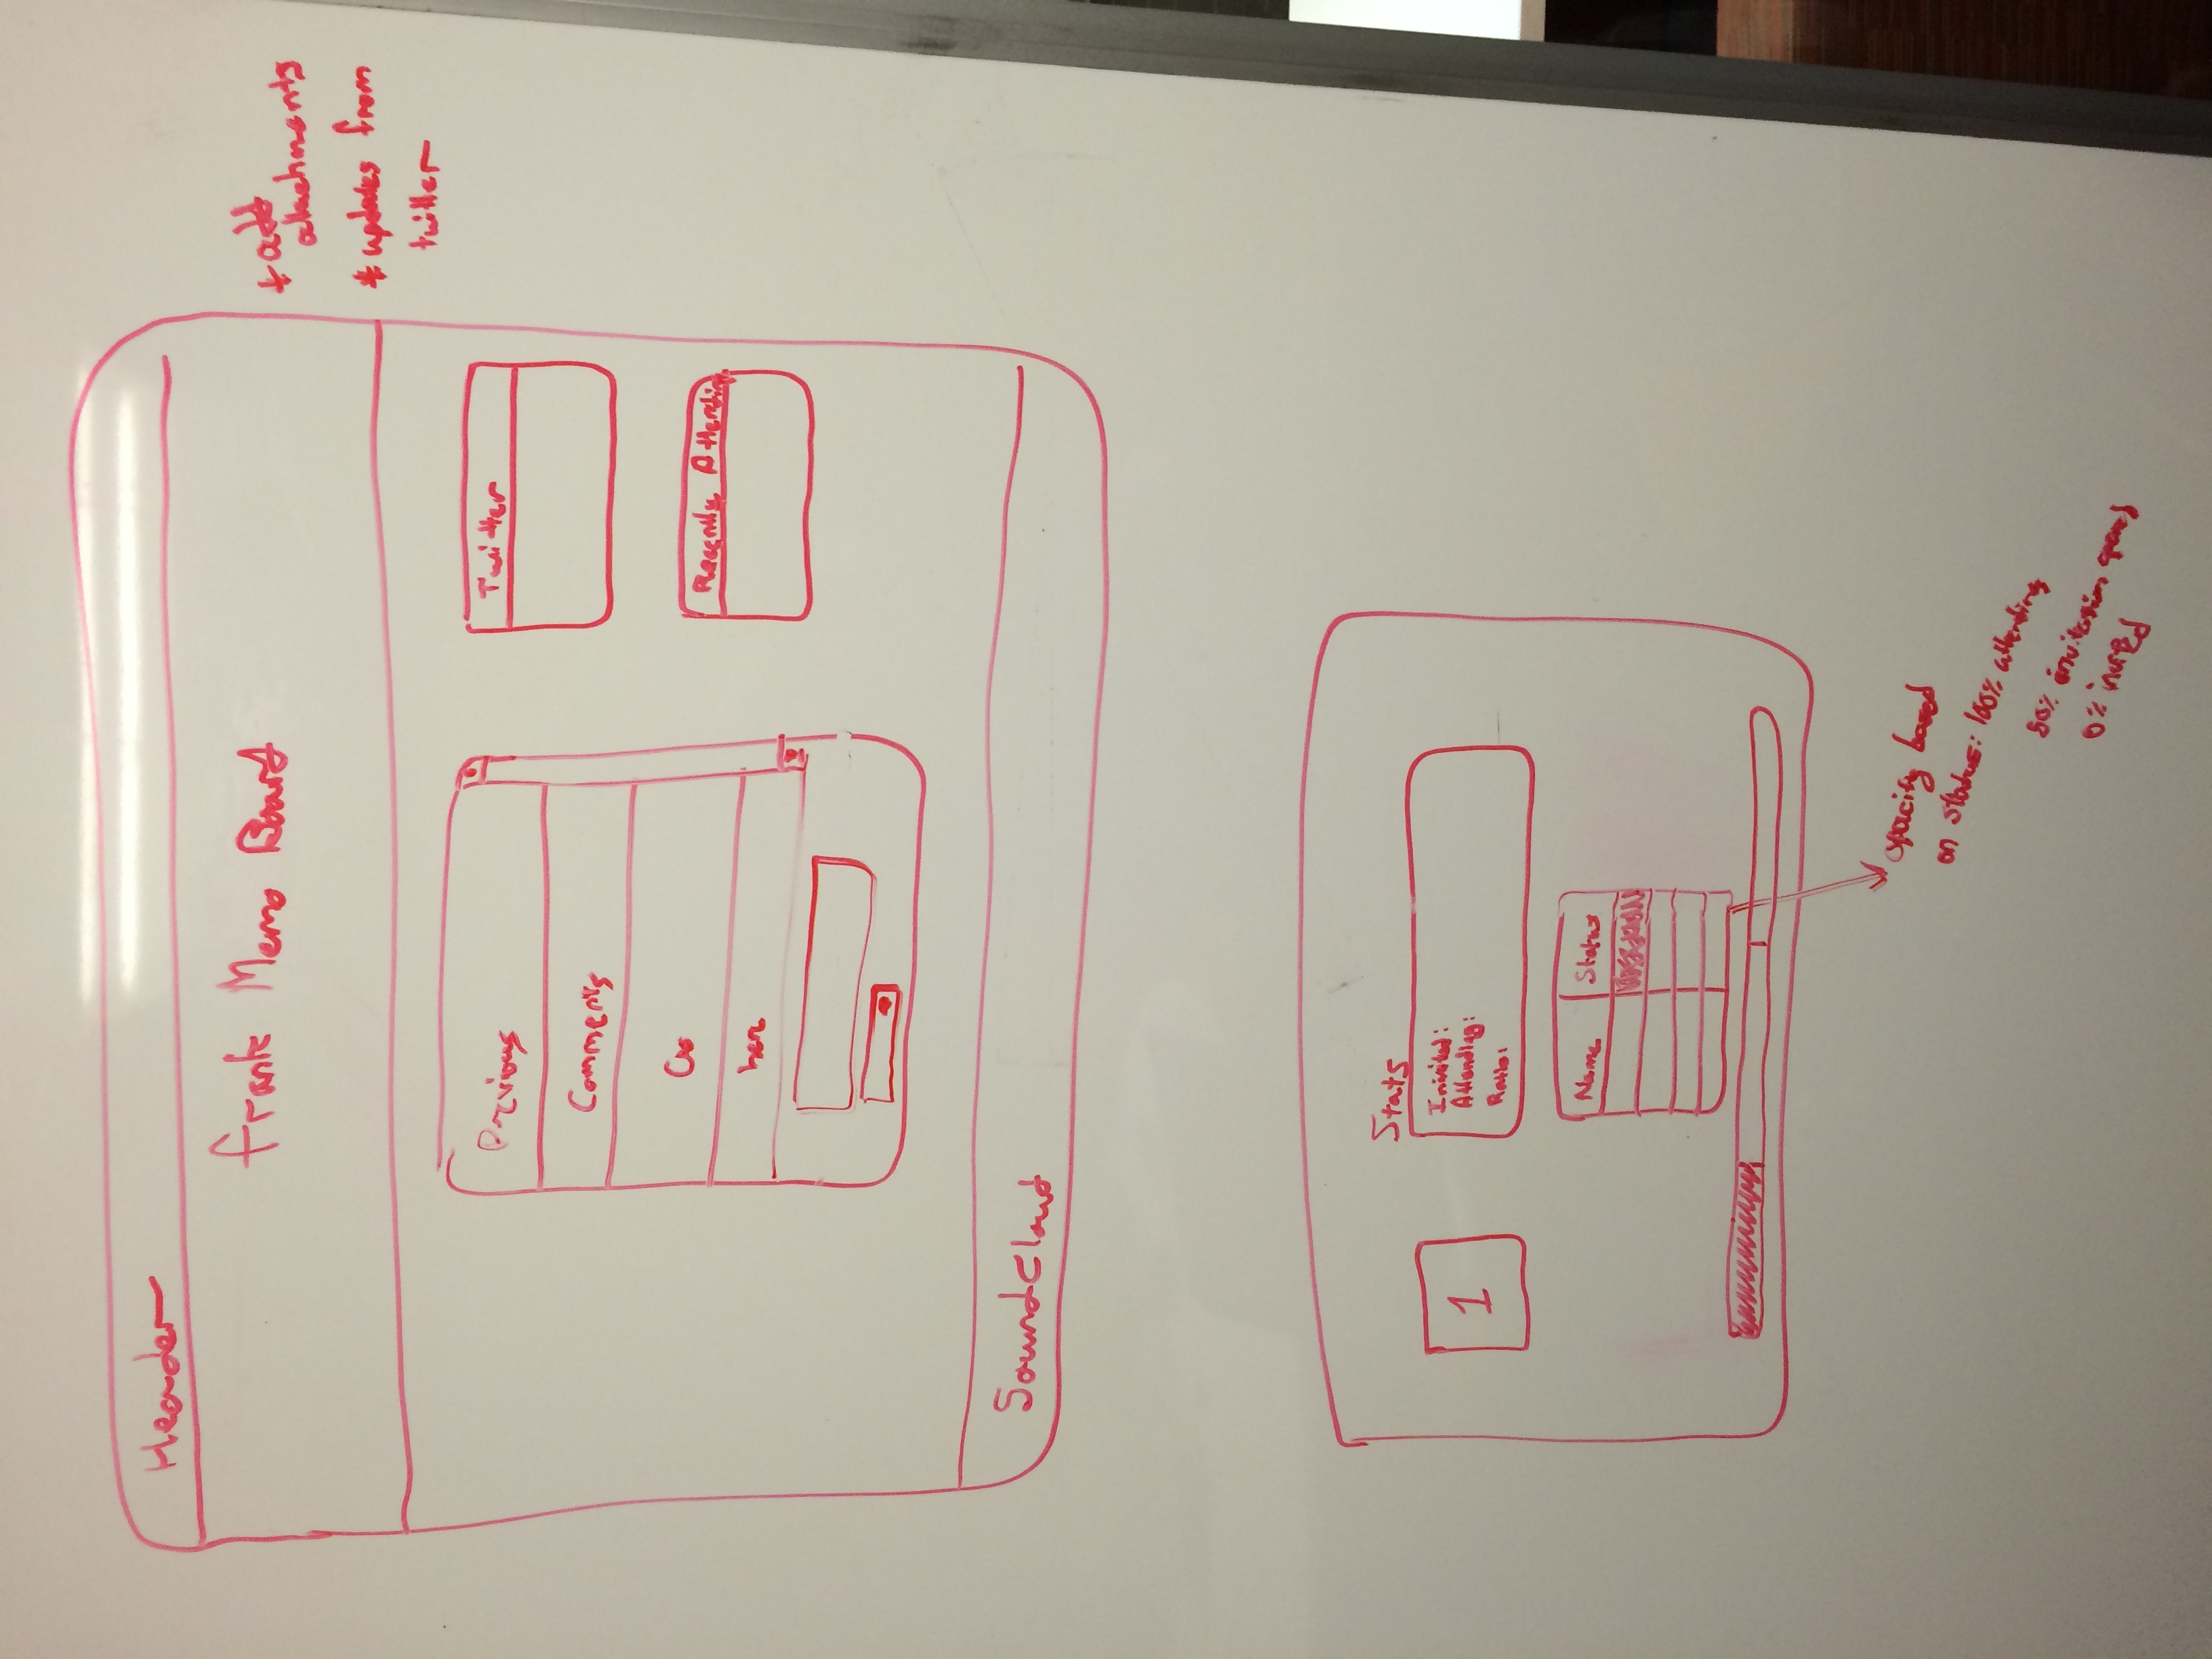 Header
frank Memo Board
* add
attachments
* updates from
twitter
Previous
Comments
Go
here
Twitter
Recently Attending
SoundCloud
Stats
1
Invited:
Attending:
Ratio:
Name Status
opacity based
on status: 100% attending
50% invitation opened
0% invited